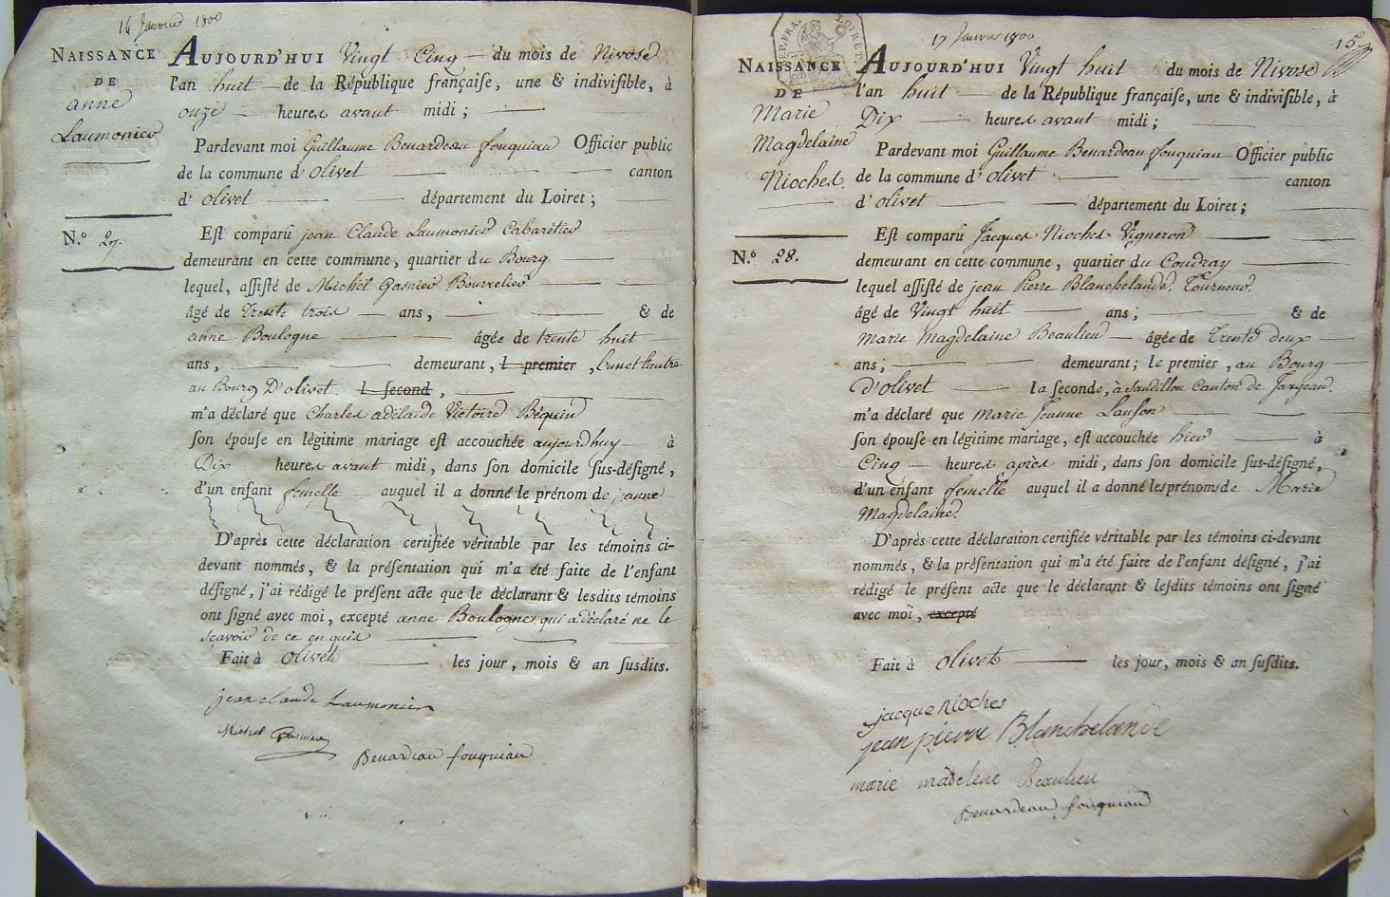 Janvier 1800
NAISSANCE
DE
anne
Laumonier
N.º 27.
AUJOURD'HUI Vingt Cinq du mois de Nivose
l'an huit de la République françaiſe, une & indiviſible, à
onze heures avant midi ;
Pardevant moi Guillaume Benardeau fouquiau Officier public
de la commune d'olivet canton
d'olivet département du Loiret ;
Eſt comparû jean Claude Laumonier Cabaretier
demeurant en cette commune, quartier du Bourg
lequel, aſſiſté de Michel Gasnier Bourrelier
âgé de Trente trois ans, & de
anne Boulogne âgée de trente huit
ans, demeurant, l premier, l'un et l'autre
au Bourg D'olivet l ſecond,
m'a déclaré que Charles adelaide Victoire Béquin
ſon épouſe en légitime mariage eſt accouchée aujourdhuy à
Dix heures avant midi, dans ſon domicile ſus-déſigné,
d'un enfant femelle auquel il a donné le prénom de anne
D'après cette déclaration certifiée véritable par les témoins ci-
devant nommés, & la préſentation qui m'a été faite de l'enfant
déſigné, j'ai rédigé le préſent acte que le déclarant & lesdits témoins
ont ſigné avec moi, excepté anne Boulogne qui a déclaré ne le
scavoir de ce enquis
Fait à olivet les jour, mois & an susdits.
jean claude Laumonier
Michel Gasnier
Benardeau fouquiau
17 Janvier 1800
15
NAISSANCE
DE
Marie
Magdelaine
Nioches.
N.º 28.
AUJOURD'HUI Vingt huit du mois de Nivose
l'an huit de la République françaiſe, une & indiviſible, à
Dix heures avant midi ;
Pardevant moi Guillaume Benardeau fouquiau Officier public
de la commune d'olivet canton
d'olivet département du Loiret ;
Eſt comparû Jacques Nioches Vigneron
demeurant en cette commune, quartier du Coudray
lequel aſſiſté de jean Pierre Blanchelande Tourneur
âgé de Vingt huit ans ; & de
Marie Magdelaine Beaulieu âgée de Trente deux
ans ; demeurant ; le premier, au Bourg
D'olivet la ſeconde, à Sandillon Canton de Jargeau
m'a déclaré que Marie Jeanne Lanson
ſon épouſe en légitime mariage, eſt accouchée hier à
Cinq heures après midi, dans ſon domicile ſus-déſigné,
d'un enfant femelle auquel il a donné les prénoms de Marie
Magdelaine
D'après cette déclaration certifiée véritable par les témoins ci-devant
nommés, & la préſentation qui m'a été faite de l'enfant déſigné, j'ai
rédigé le préſent acte que le déclarant & leſdits témoins ont ſigné
avec moi, excepté
Fait à olivet les jour, mois & an ſuſdits.
jacque Nioches
jean pierre Blanchelande
marie madelene Beaulieu
Benardeau fouquiau